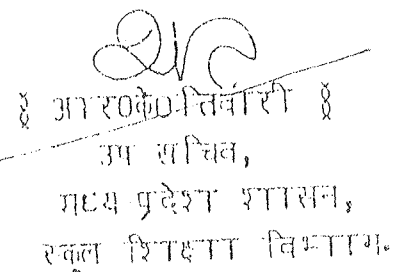 ॥ आर०के० तिवारी ॥
उप सचिव,
मध्य प्रदेश शासन,
स्कूल शिक्षा विभाग.